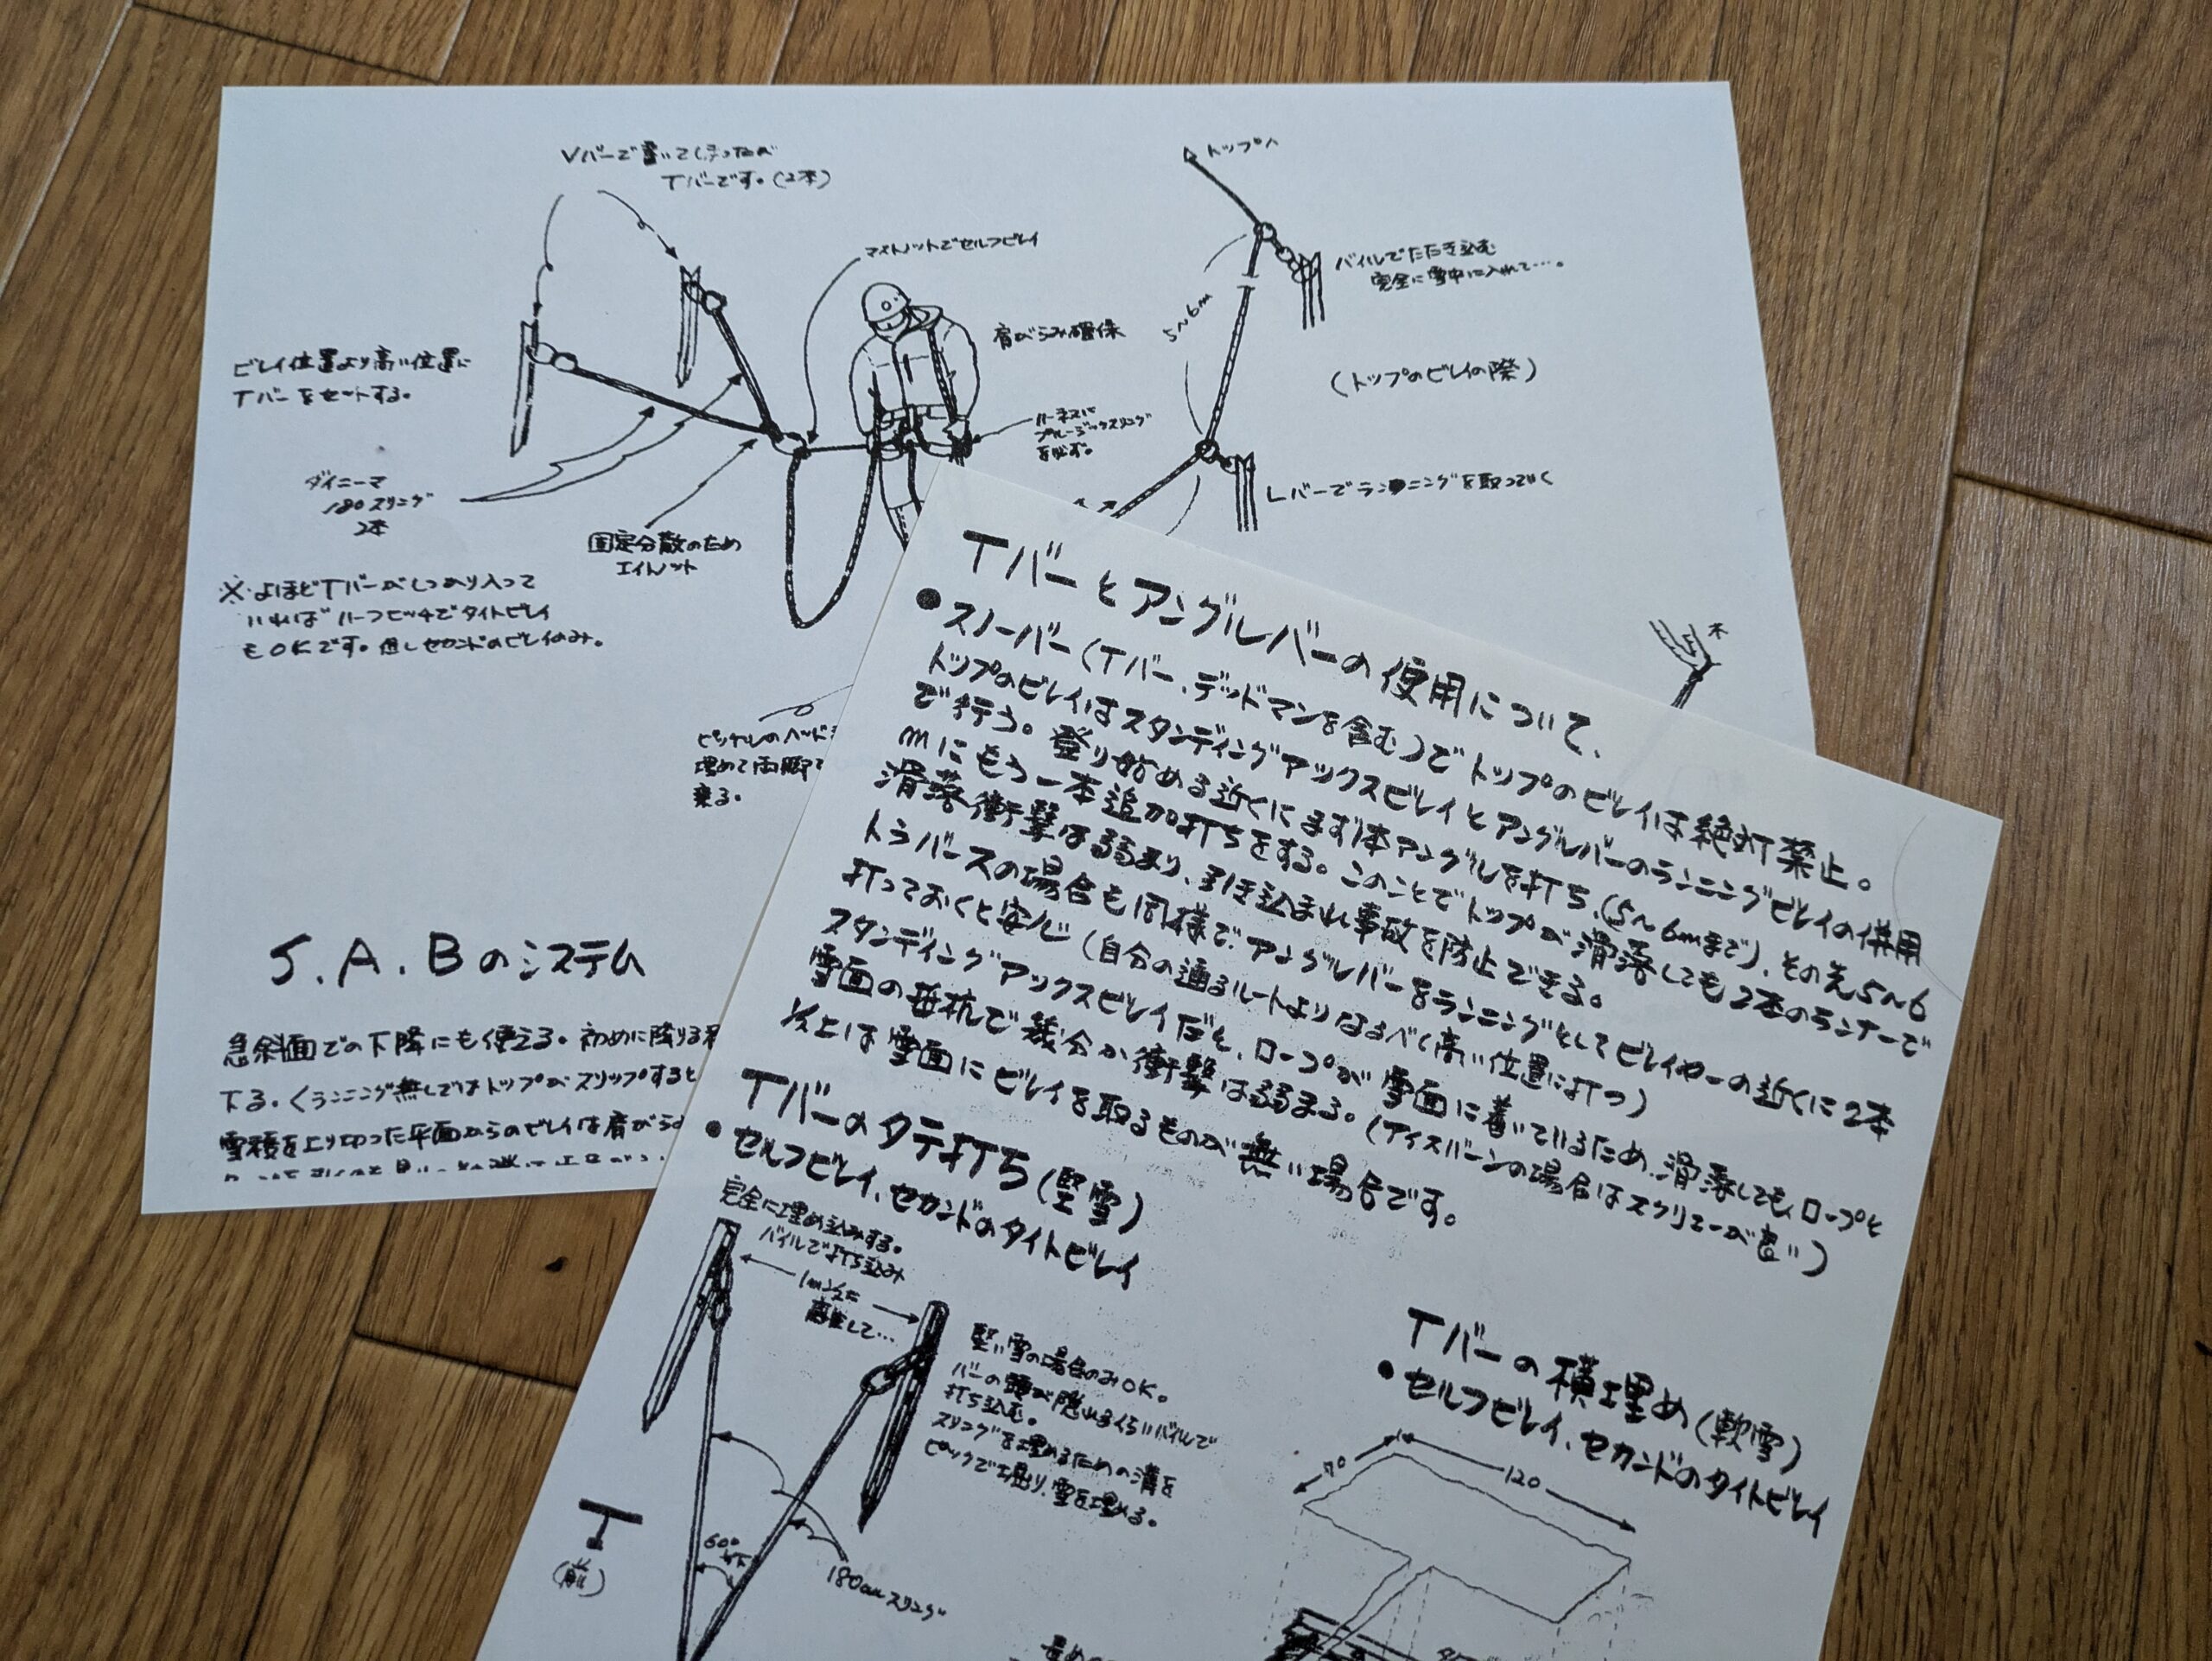 Vバーで書いてしまったが
Tバーです。(2本)
トップへ
マストノットでセルフビレイ
バイルでたたき込む
完全に雪中に入れて…。
5〜6m
肩がらみ確保
(トップのビレイの際)
ビレイ位置より高い位置に
Tバーをセットする。
ハーネスに
プルージックスリング
を必ず。
Lバーでランニングを取っていく
ダイニーマ
180スリング
2本
固定分散のため
エイトノット
※よほどTバーがしっかり入って
いればハーフヒッチでタイトビレイ
もOKです。但しセカンドのビレイのみ。
木
ピッケルのヘッド
埋めて両脚で
乗る。
S.A.Bのシステム
急斜面での下降にも使える。初めに降りる
下る。くランニング無しではトップがスリップすると
雪稜を上り切った平面からのビレイは肩がら
Tバーとアングルバーの使用について、
●スノーバー(Tバー、デッドマンを含む)でトップのビレイは絶対禁止。
トップのビレイはスタンディングアックスビレイとアングルバーのランニングビレイの併用
で行う。登り始める近くにまず1本アングルを打ち、(5〜6mまで)、その先5〜6
mにもう一本追加打ちをする。このことでトップが滑落しても2本のランナーで
滑落衝撃は弱まり、引き込まれ事故を防止できる。
トラバースの場合も同様で、アングルバーをランニングとしてビレイヤーの近くに2本
打っておくと安心(自分の通るルートよりなるべく高い位置に打つ)
スタンディングアックスビレイだと、ロープが雪面に着いているため、滑落しても、ロープと
雪面の抵抗で幾分か衝撃は弱まる。(アイスバーンの場合はスクリューが良い)
以上は雪面にビレイを取るものが無い場合です。
Tバーのタテ打ち(堅雪)
●セルフビレイ、セカンドのタイトビレイ
完全に埋め込みする。
バイルで打ち込み
1m以上
離して…
堅い雪の場合のみOK。
バーの頭が隠れるくらいバイルで
打ち込む。
スリングを埋めるための溝を
ピックで掘り、雪を埋める。
Tバーの横埋め(軟雪)
●セルフビレイ、セカンドのタイトビレイ
70
120
60°
以下
180cmスリング
(前)